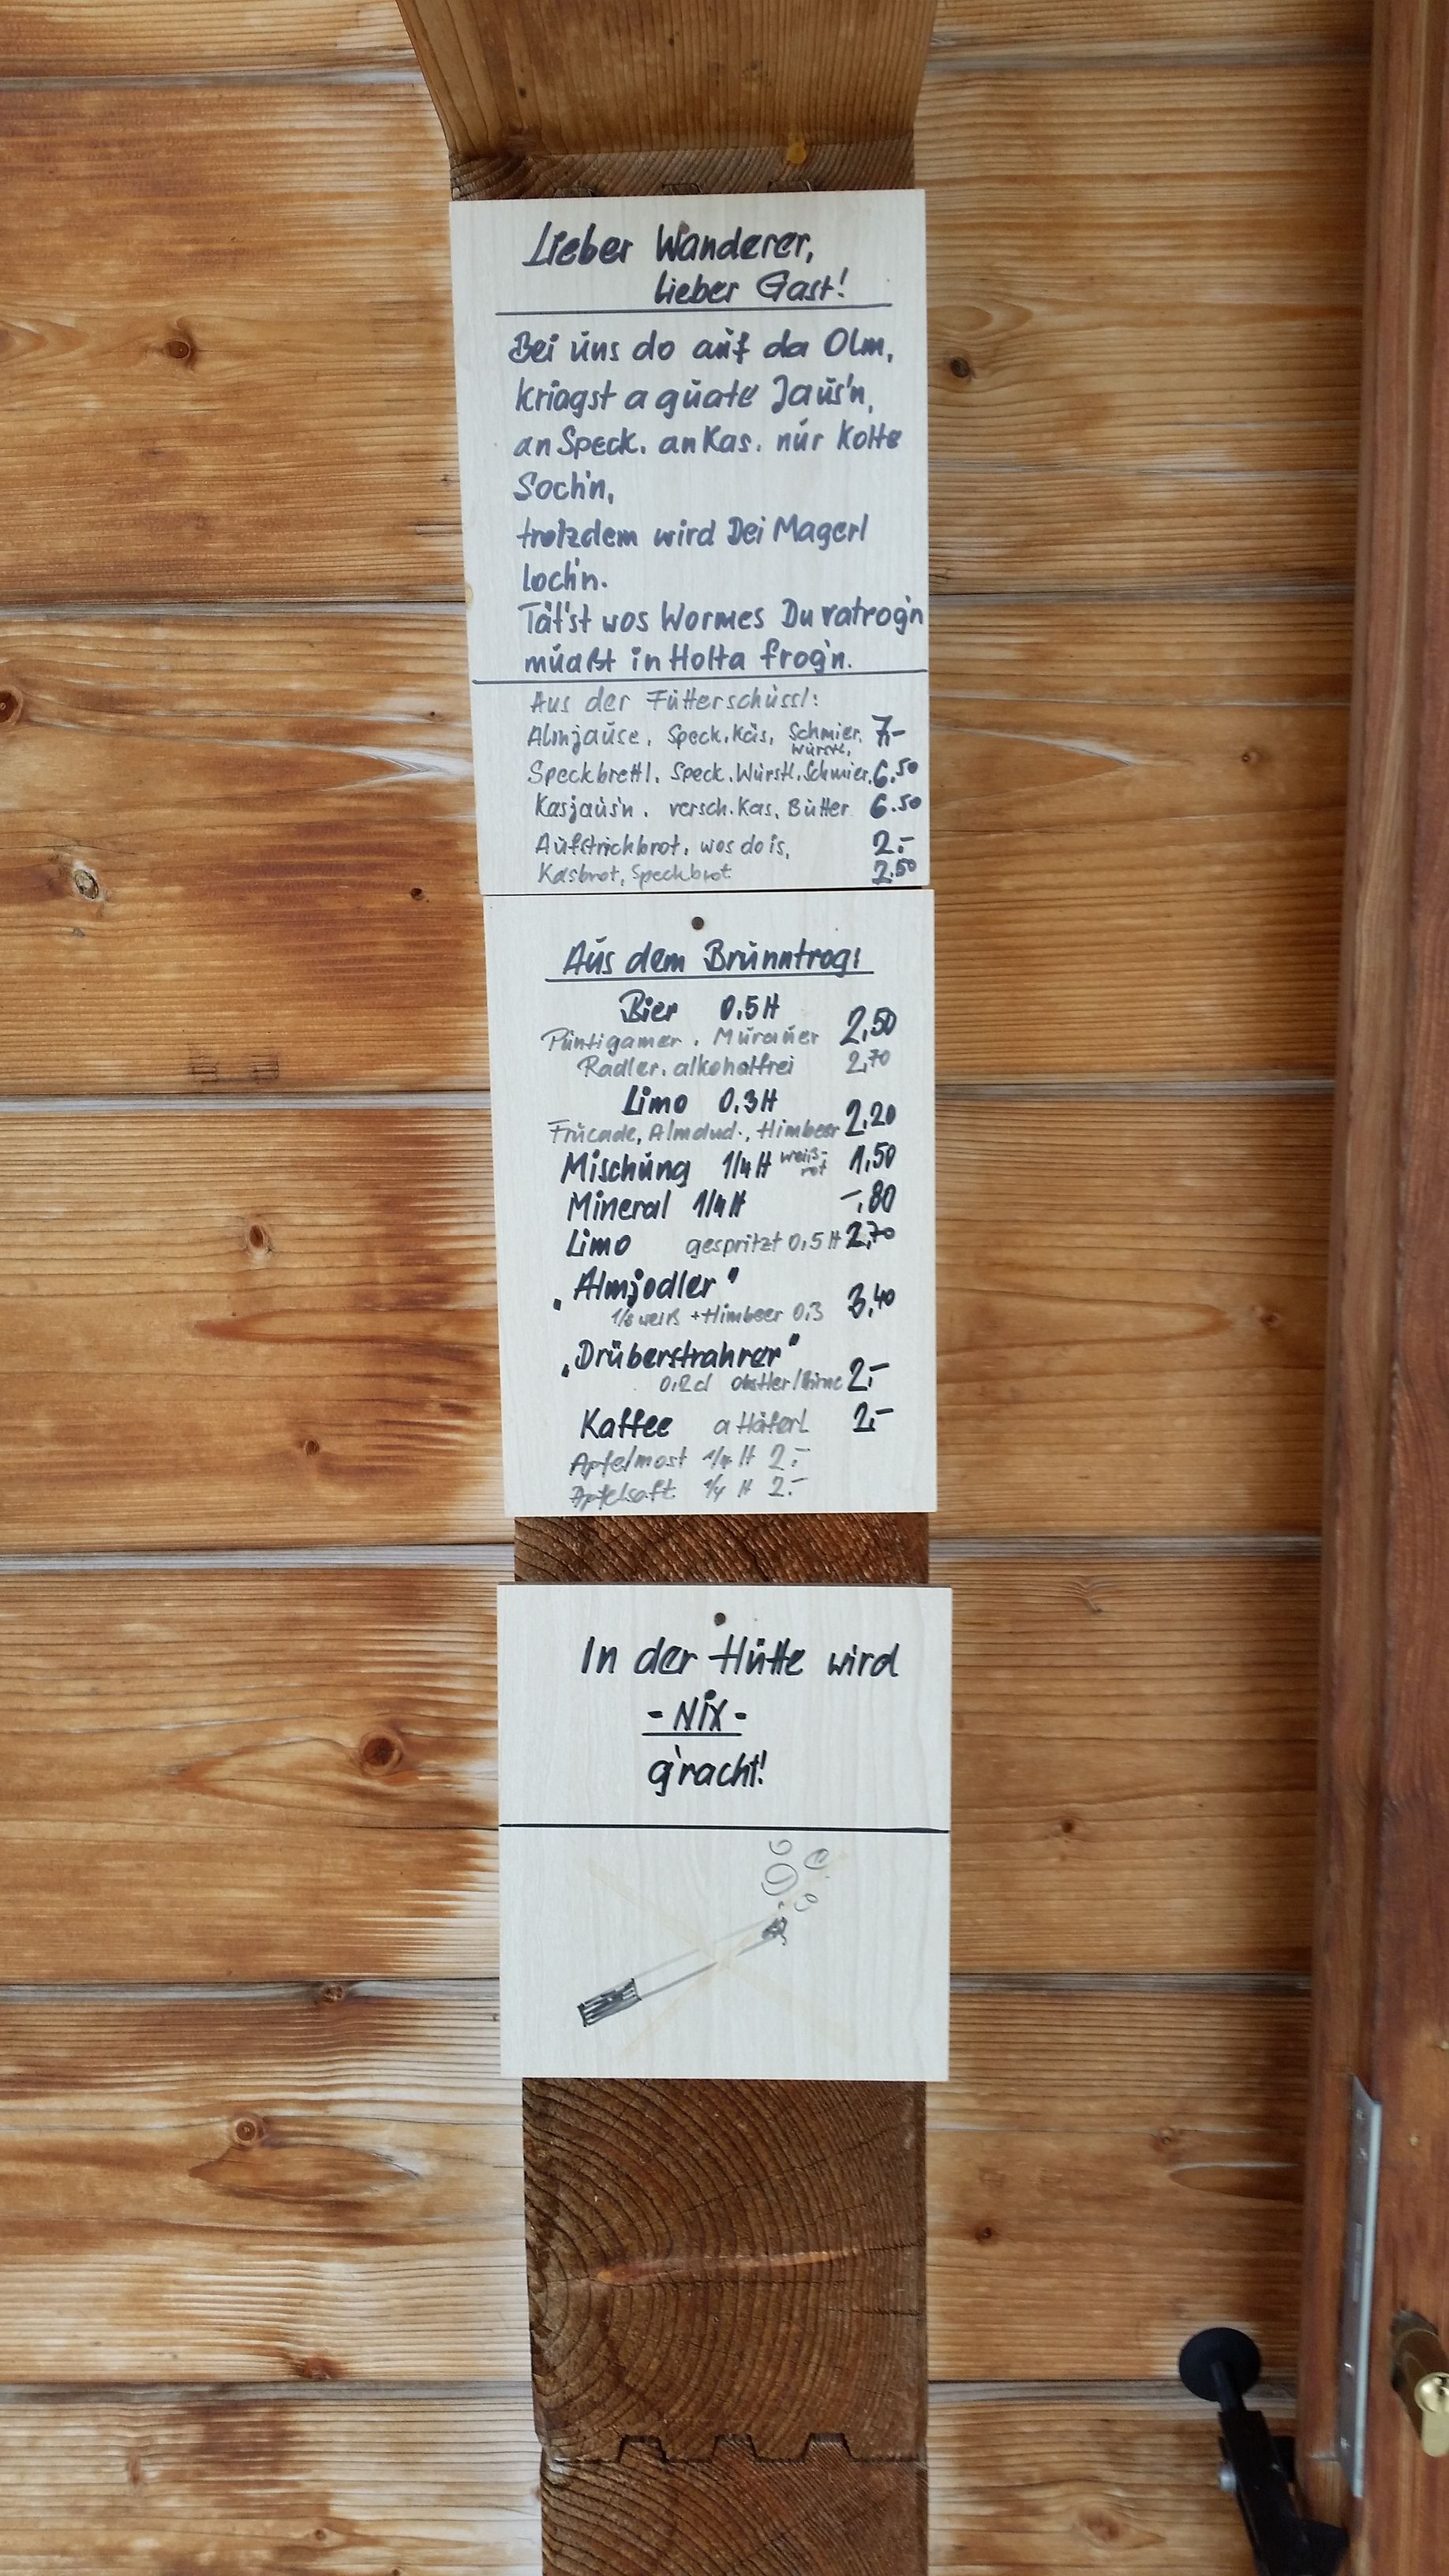 Lieber Wanderer,
lieber Gast!
Bei uns do auf da Olm,
kriagst a guate Jaus'n,
an Speck, an Kas, nur kolte
Soch'n,
trotzdem wird Dei Magerl
loch'n.
Tät'st wos Wormes Du vatrog'n
muaßt in Holta frog'n.
Aus der Futterschüssl:
Almjause, Speck, Käs, Schmier, 7,-
Würstl,
Speckbrettl, Speck, Würstl, Schmier, 6.50
Kasjaus'n, versch. Kas, Butter 6.50
Aufstrichbrot, wos do is, 2,-
Kasbrot, Speckbrot 2.50
Aus dem Brunntrog:
Bier 0,5 lt 2,50
Puntigamer, Murauer
Radler, alkoholfrei 2,70
Limo 0,3 lt 2,20
Frucade, Almdud., Himbeer
Mischung 1/4 lt weiß- rot 1,50
Mineral 1/4 lt -,80
Limo gespritzt 0,5 lt 2,70
„Almjodler"
1/8 weiß + Himbeer 0,3 3,40
„Drüberstrahrer"
0,2 cl Obstler/Birne 2,-
Kaffee a Häferl 2,-
Apfelmost 1/4 lt 2,-
Apfelsaft 1/4 lt 2,-
In der Hütte wird
- NiX -
g'racht!